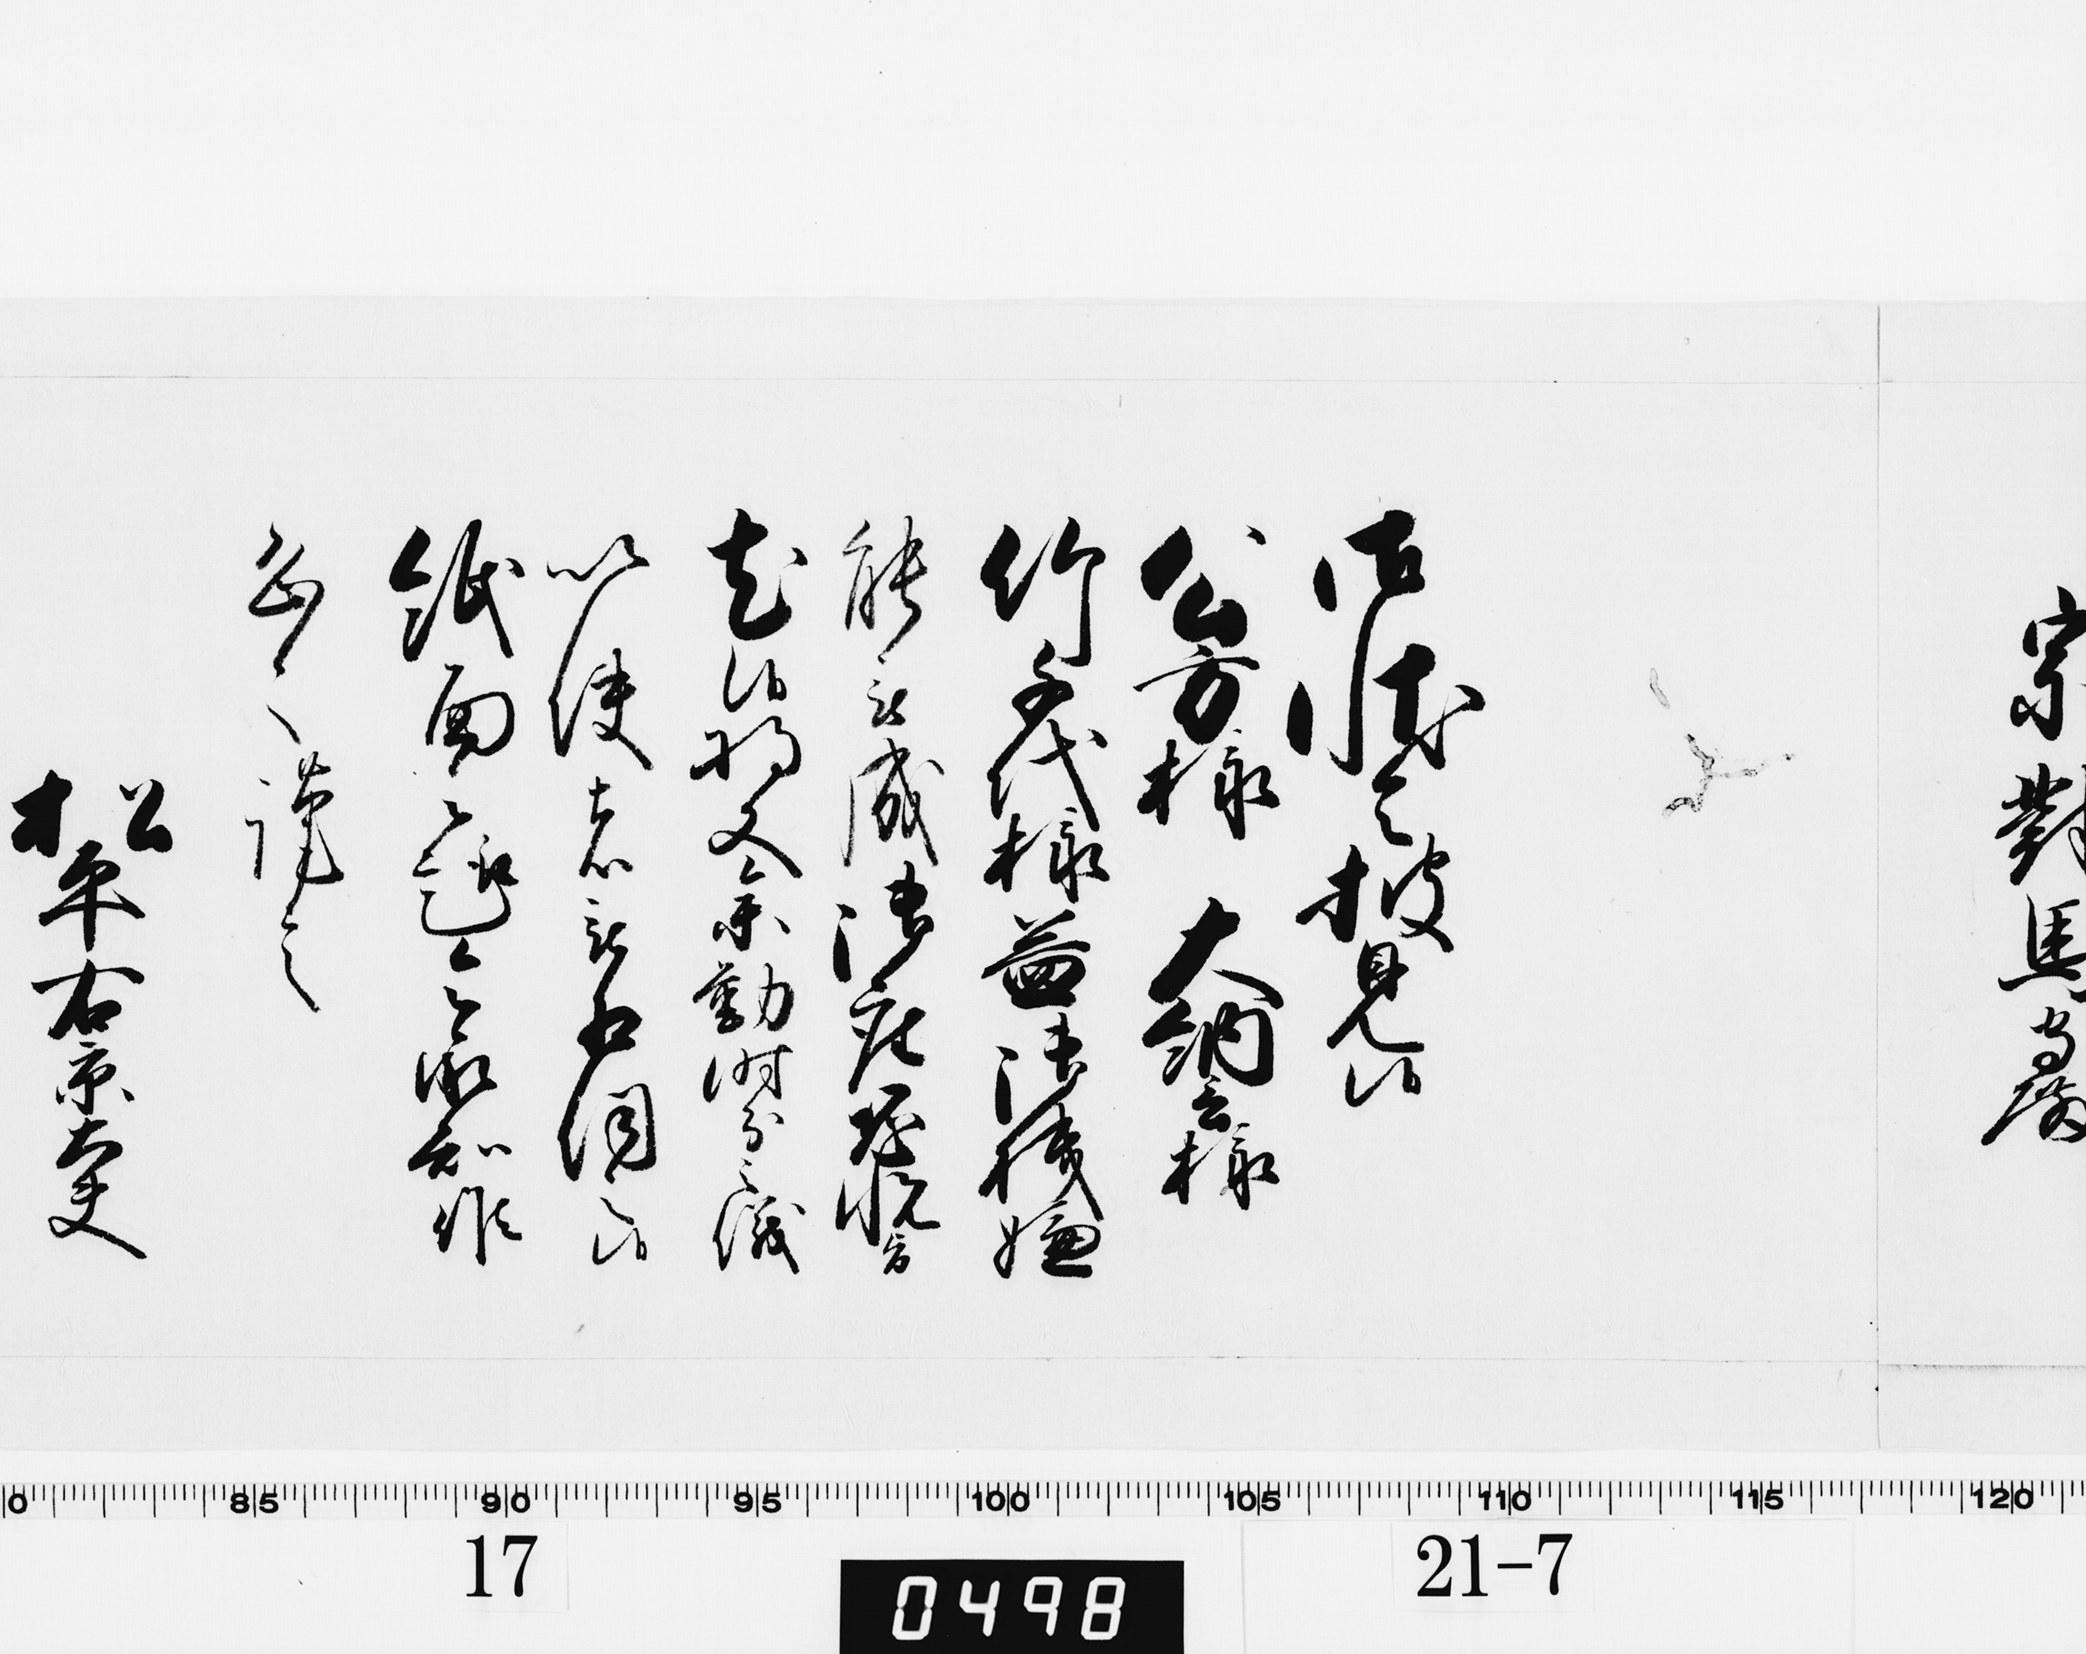 宗對馬守殿
御状令披見候
公方様　大納言様
竹千代様益御機嫌
能被成御座恐悦旨
尤候将又参勤時分之儀
以使者被相伺之候
紙面之趣令承知候
恐々謹言
松平右京大夫
0 85 90 95 100 105 110 115 120
17
21-7
0498